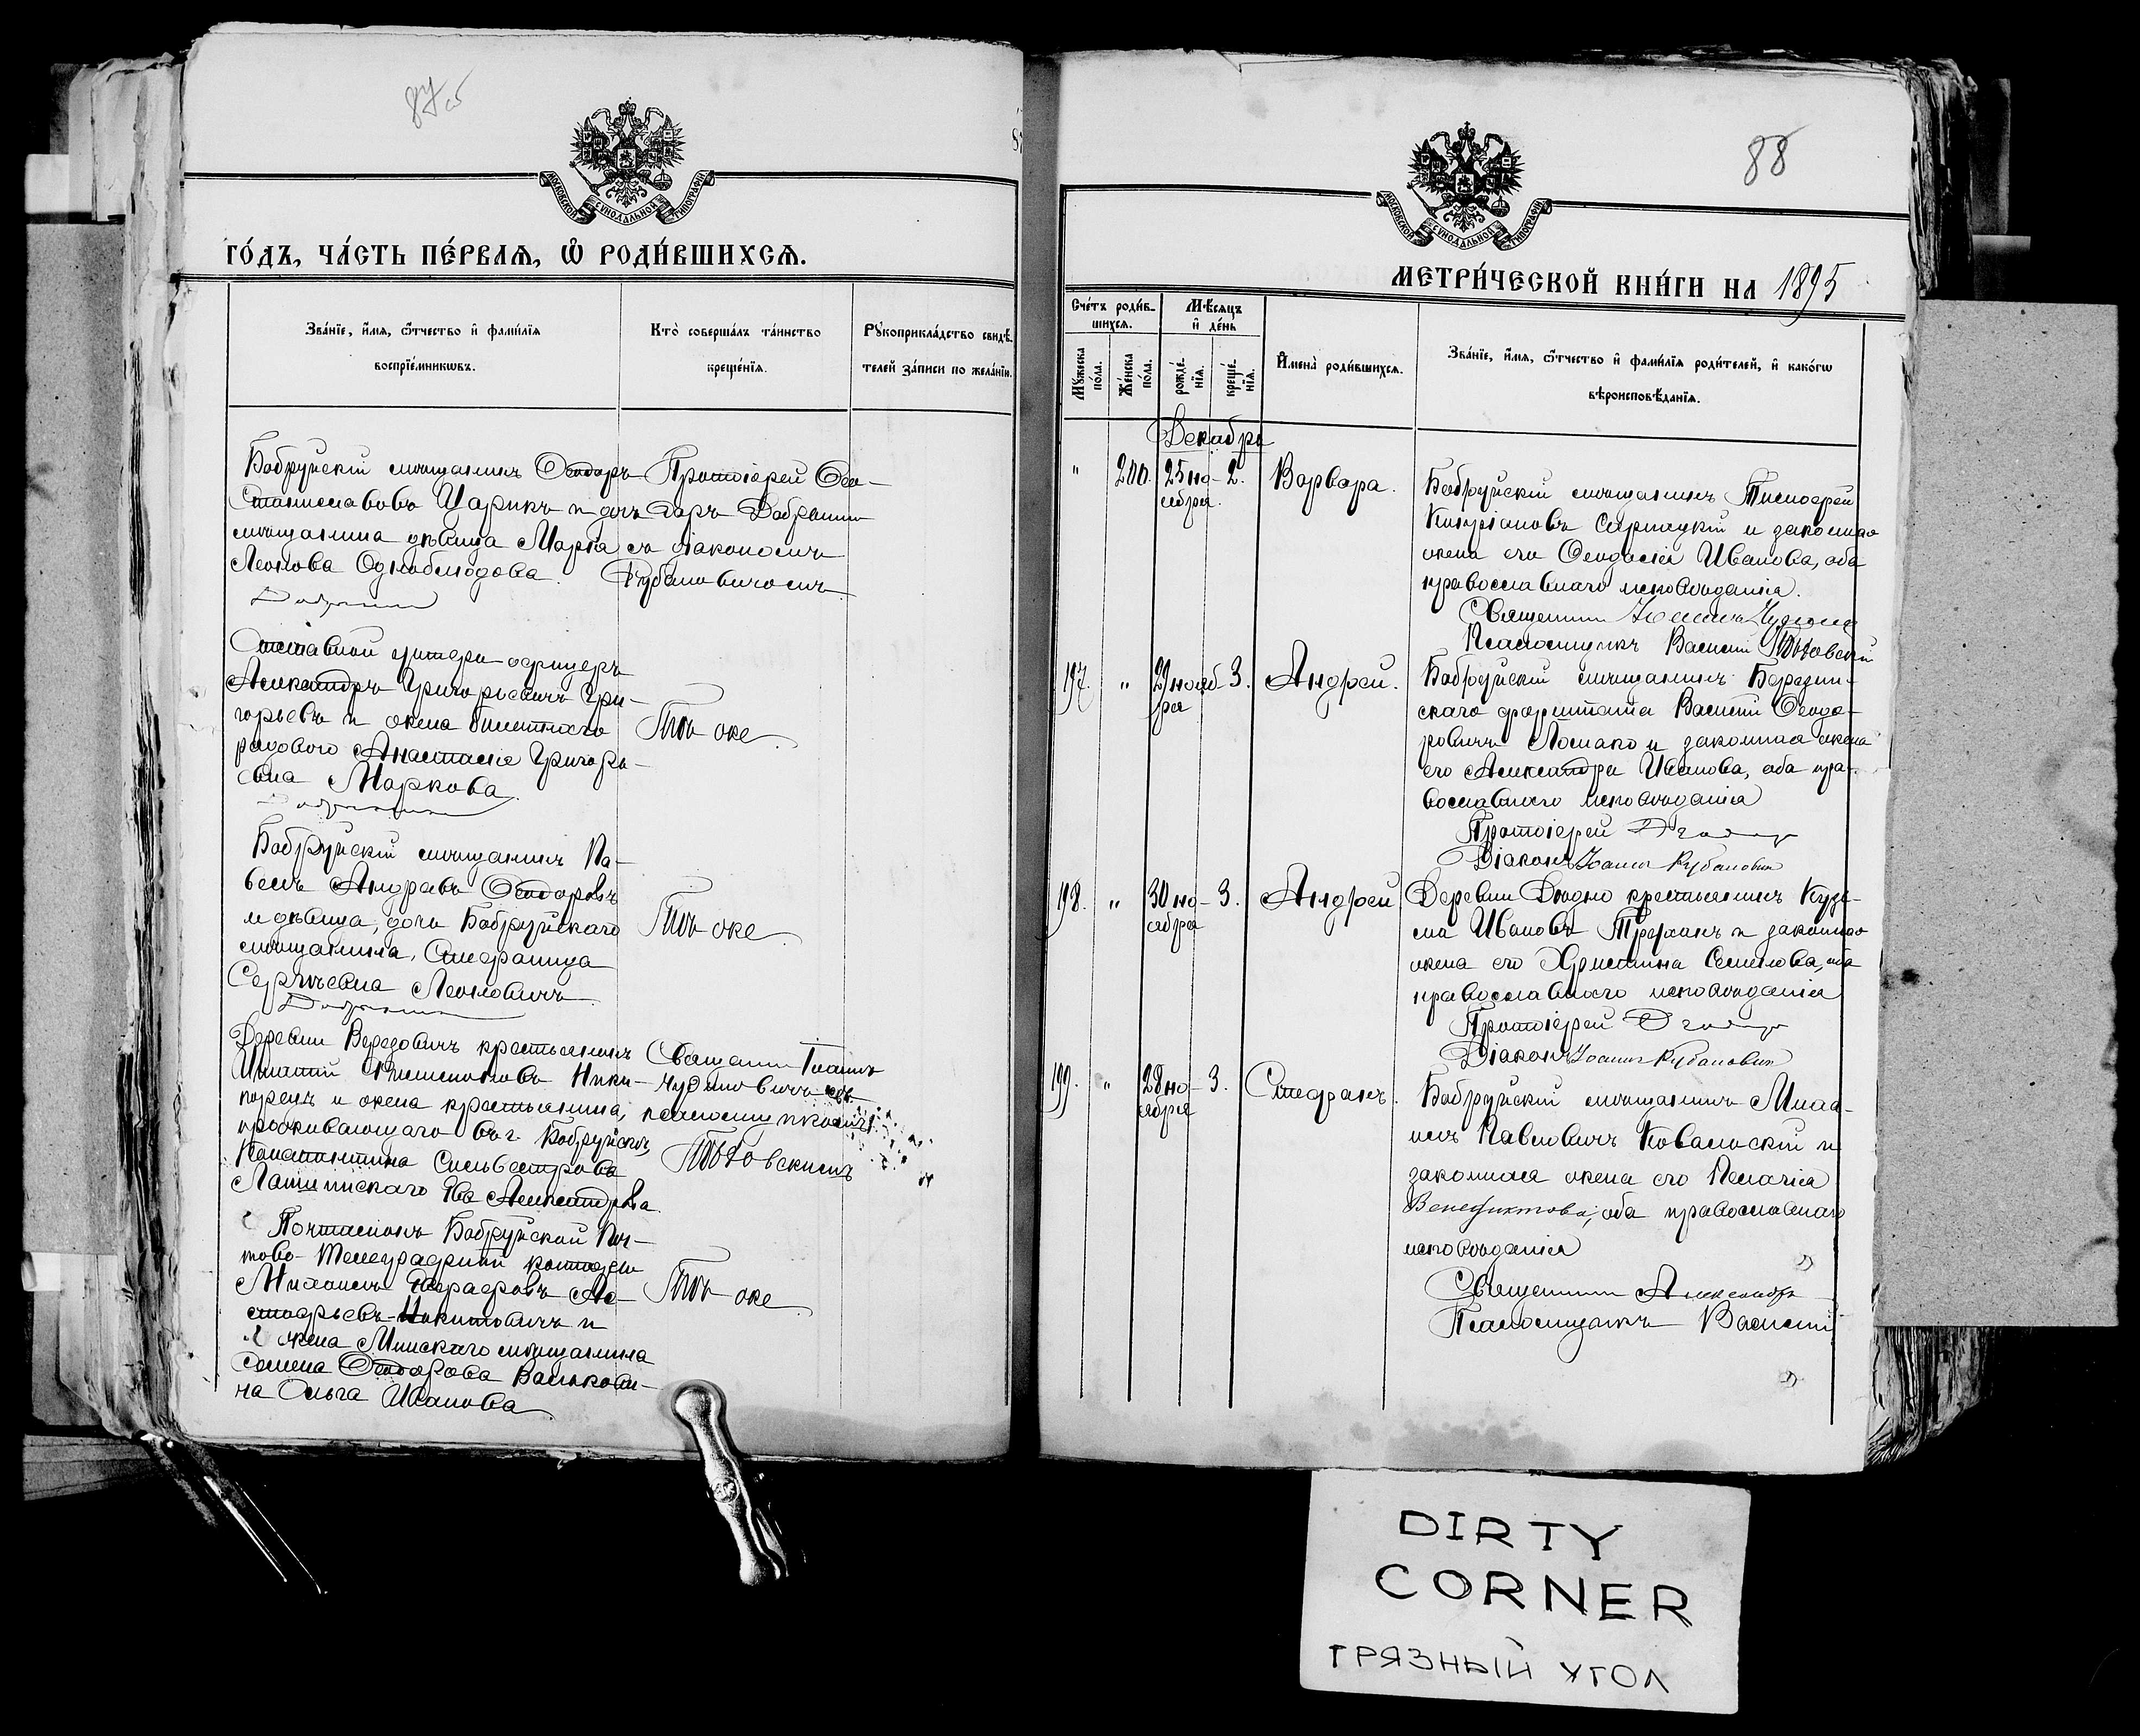 87 об
МОСКОВСКОЙ СУНОДАЛЬНОЙ ТИПОГРАФІИ
ГО́ДЪ, ЧА́СТЬ ПЕ́РВАЯ, Ѡ҆ РОДИ́ВШИХСЯ.
Зва́нїе, и҆́мя, ѻ҆́тчество и҆ фами́лїя
воспрїе́мникѡвъ.
Кто̀ соверша́лъ та́инство
креще́нїя.
Рꙋкоприкла́дство свидѣ́-
телей за́писи по жела́нїи.
Бобруйскій мѣщанинъ Ѳеодоръ
Станиславовъ Царикъ и дочь
мѣщанина дѣвица Марія
Леонова Однобмодова.
Протоіерей Ѳео-
доръ Добрынин
съ діакономъ
Рубановичемъ
Отставной унтеръ-офицеръ
Александръ Григорьевичъ Гри-
горьевъ и жена билетнаго
рядового Анастасія Григорь-
евна Маркова.
Тѣ же.
Бобруйскій мѣщанинъ Па-
велъ Андреевъ Ѳеодоровъ
и дѣвица, дочь Бобруйскаго
мѣщанина, Стефанида
Сергѣевна Леоновичъ.
Тѣ же.
Деревни Вередовичъ крестьянинъ
Игнатій Ники-
порецъ и жена крестьянина,
проживающаго въ г. Бобруйскѣ,
Константина Сильвестрова
Лашинскаго Ева Александрова.
Священ. Іоаннъ
Чудиловичъ съ
псаломщикомъ
Тѣтовскимъ
Почталіонъ Бобруйской Поч-
тово-Телеграфной конторы
Михаилъ
Никитовичъ и
жена Минскаго мѣщанина
Семена Ѳеодорова Валькови-
ча Ольга Иванова
Тѣ же.
88
МОСКОВСКОЙ СУНОДАЛЬНОЙ ТИПОГРАФІИ
МЕТРИ́ЧЕСКОЙ КНИ́ГИ НА 1895
Сче́тъ роди́в-
шихся.
Мѣ́сяцъ
и҆ де́нь
Мꙋ́жеска
по́ла.
Же́нска
по́ла.
рожде́-
нїя.
креще́-
нїя.
И҆мена̀ роди́вшихся.
Зва́нїе, и҆́мя, ѻ҆́тчество и҆ фами́лїя роди́телей, и҆ како́гѡ
вѣроисповѣ́данїя.
Декабрь
" 200. 25 но-
ября. 2. Варвара.
Бобруйскій мѣщанинъ Тимоѳей
Кипріановъ Сарнацкій и законная
жена его Ѳеодосія Иванова, оба
православнаго исповѣданія.
Священникъ
Псаломщикъ Василій Тѣтовскій
197. " 29 нояб-
ря 3. Андрей.
Бобруйскій мѣщанинъ Березин-
скаго форштата Василій Ѳеодо-
ровичъ Ломако и законная жена
его Александра Иванова, оба пра-
вославнаго исповѣданія
Протоіерей
Діаконъ Іоаннъ Рубановичъ
198. " 30 но-
ября 3. Андрей
Деревни Дѣдно крестьянинъ Кузь-
ма Ивановъ Труханъ и законная
жена его Христина Семенова, оба
православнаго исповѣданія
Протоіерей
Діаконъ Іоаннъ Рубановичъ
199. " 28 но-
ября 3. Стефанъ.
Бобруйскій мѣщанинъ Миха-
илъ Павловичъ Ковальскій и
законная жена его Пелагія
Венедиктова, оба православнаго
исповѣданія
Священникъ Александръ
Псаломщикъ Василій
DIRTY
CORNER
ГРЯЗНЫЙ УГОЛ